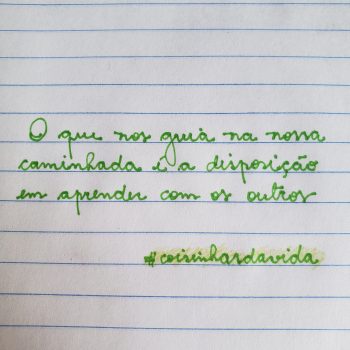 O que nos guia na nossa
caminhada é a disposição
em aprender com os outros
#coisinhasdavida